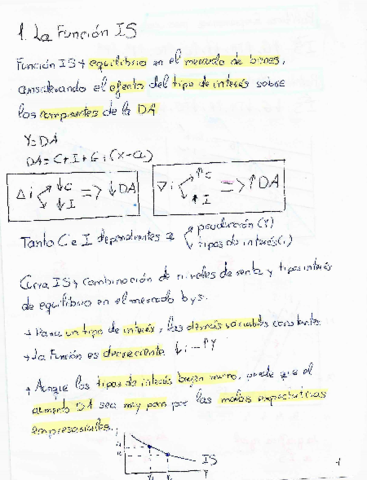 1. La Función IS
Función IS → equilibrio en el mercado de bienes,
considerando el efecto del tipo de interés sobre
los componentes de la DA
Y=DA
DA=C+I+G+(X-Q)
Δi ↓C ↓I => ↓DA
∇i ↑C ↑I => ↑DA
Tanto C e I dependientes a producción (Y)
tipos de interés (i)
Curva IS → combinación de niveles de renta y tipos interés
de equilibrio en el mercado b y s.
→ Para un tipo de interés, las demás variables constantes
→ La Función es decreciente ↓i → ↑Y
→ Aunque los tipos de interés bajen mucho, puede que el
aumento DA sea muy poco por las malas expectativas
empresariales.
IS
Y